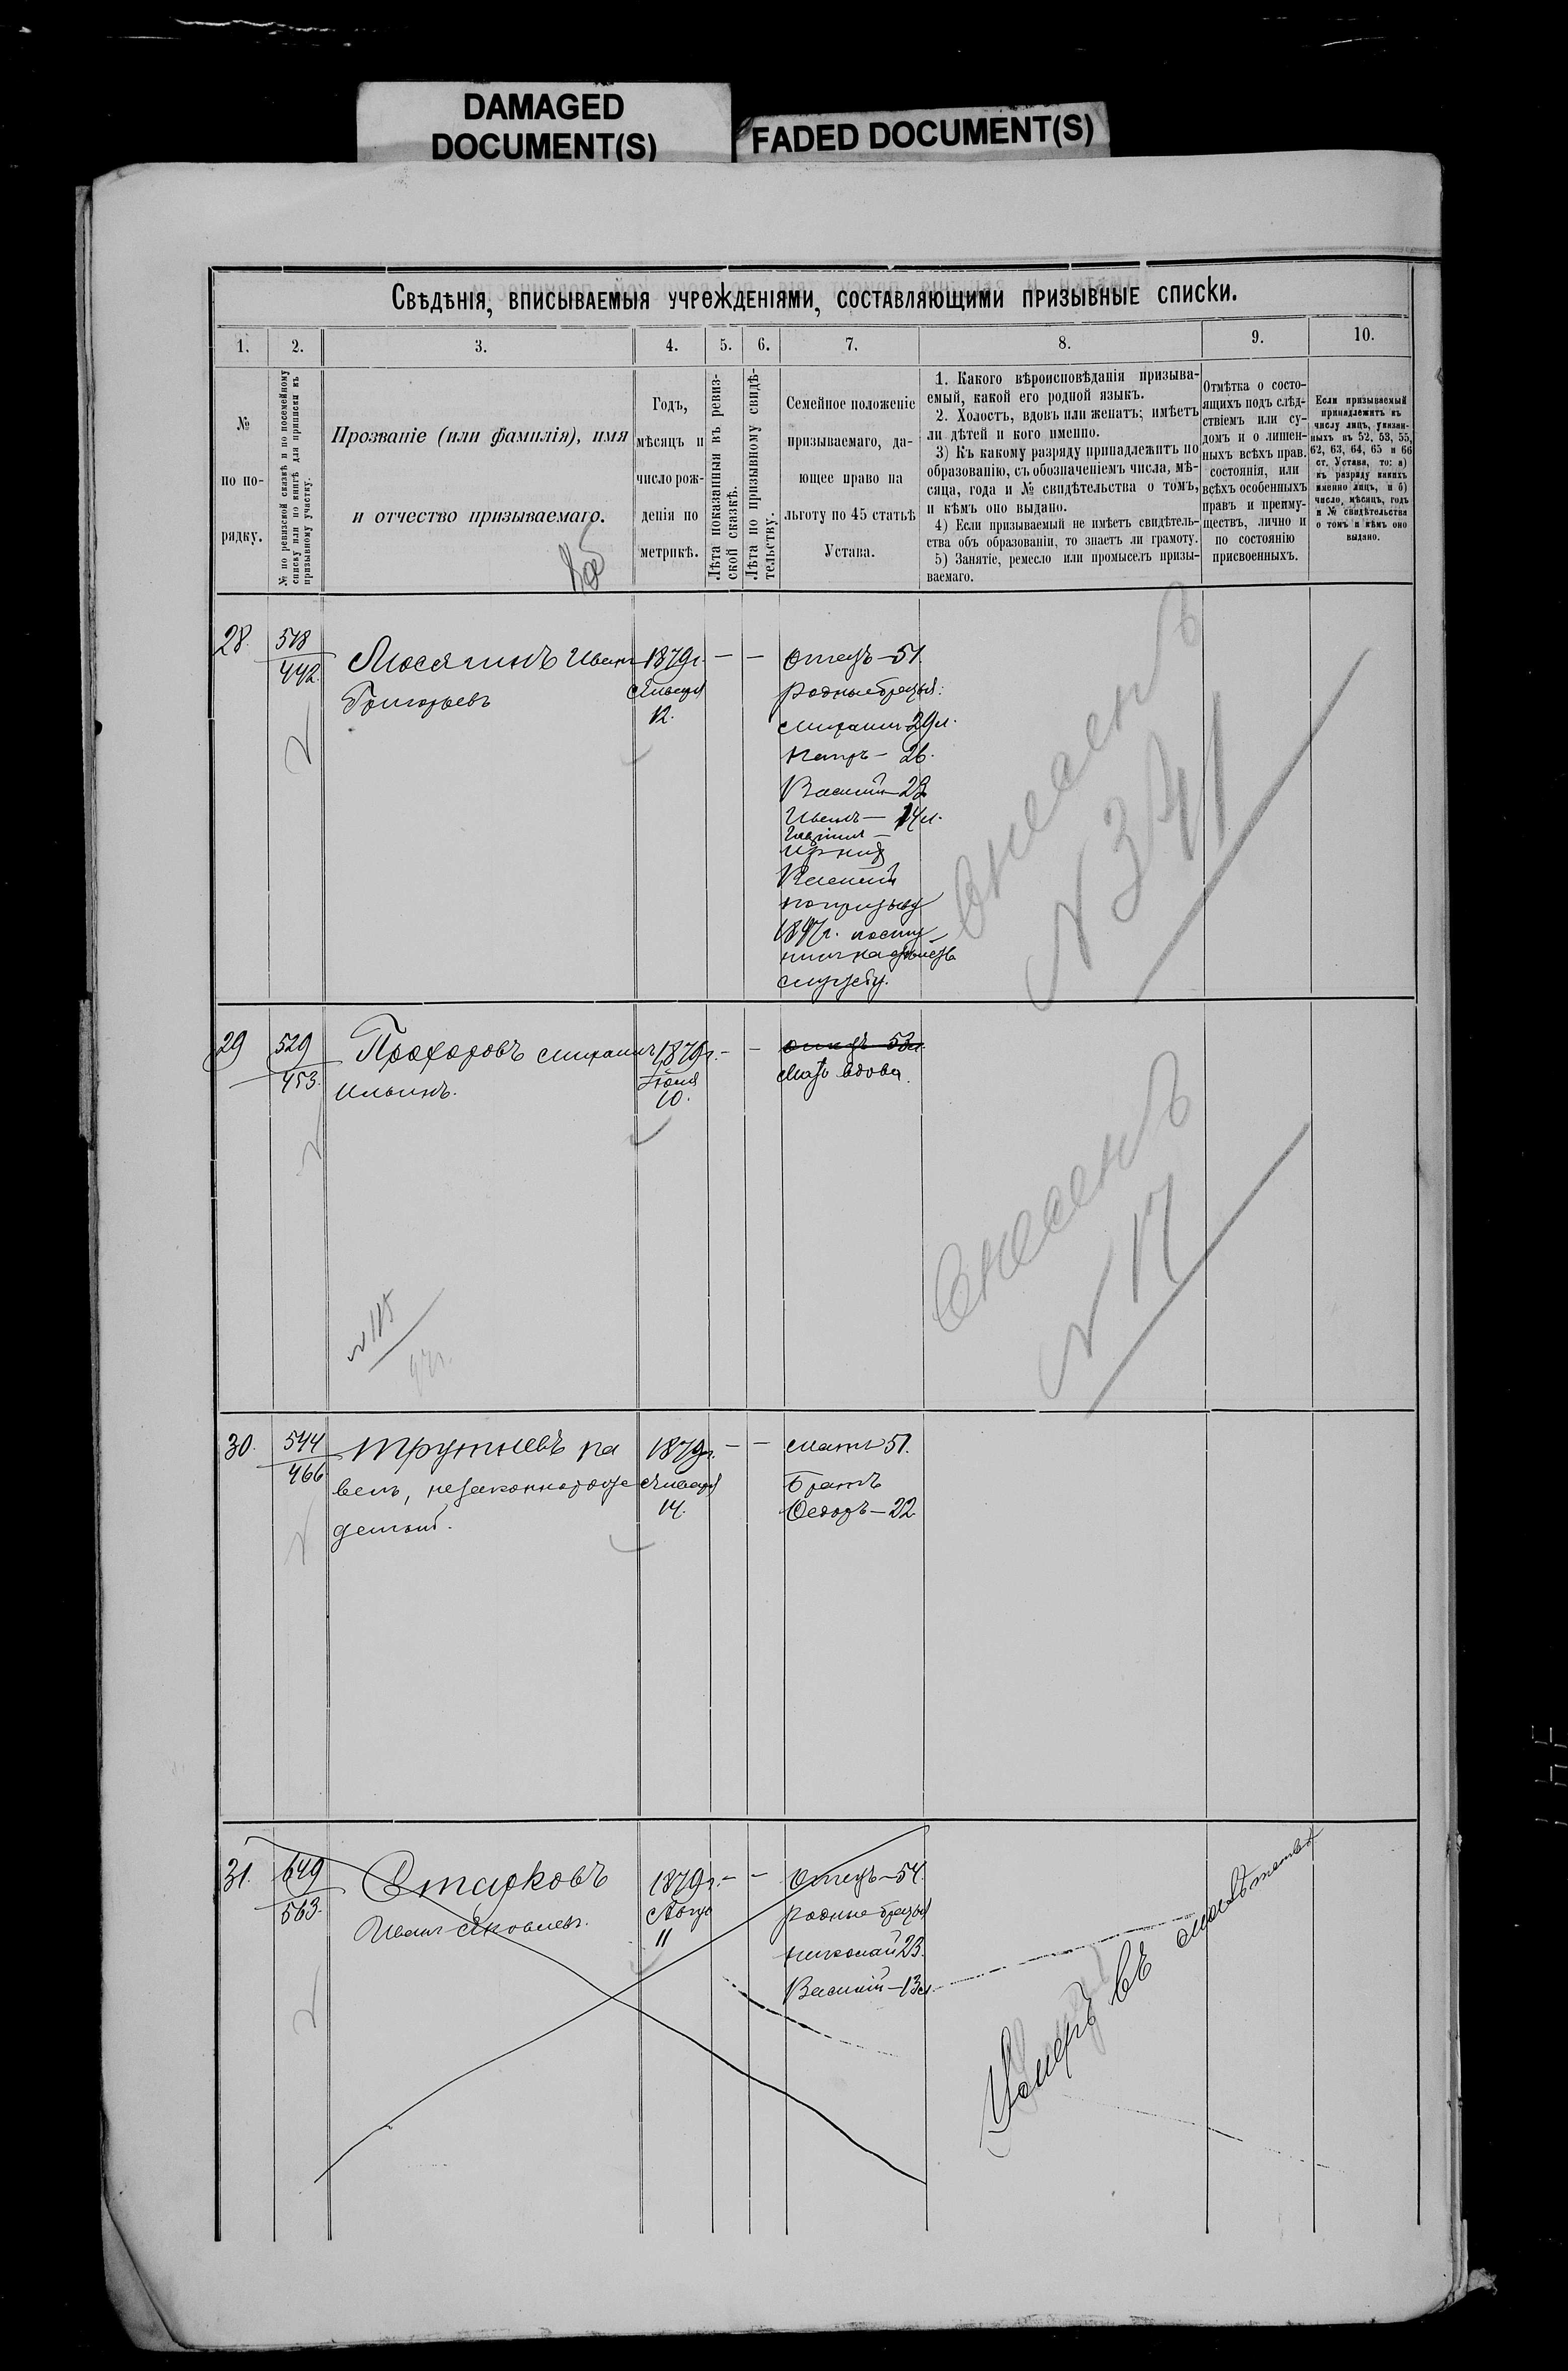 DAMAGED
DOCUMENT(S)
FADED DOCUMENT(S)
Свѣдѣнія, вписываемыя учрежденіями, составляющими призывные списки.
1. 2. 3. 4. 5. 6. 7. 8. 9. 10.
№
по по-
рядку.
№ по ревизской сказкѣ и по посемейному
списку или по книгѣ для приписки къ
призывному участку.
Прозваніе (или фамилія), имя
и отчество призываемаго.
Годъ,
мѣсяцъ и
число рож-
денія по
метрикѣ.
Лѣта показанныя въ ревиз-
ской сказкѣ.
Лѣта по призывному свидѣ-
тельству.
Семейное положеніе
призываемаго, да-
ющее право на
льготу по 45 статьѣ
Устава.
1. Какого вѣроисповѣданія призыва-
емый, какой его родной языкъ.
2. Холостъ, вдовъ или женатъ; имѣетъ
ли дѣтей и кого именно.
3) Къ какому разряду принадлежитъ по
образованію, съ обозначеніемъ числа, мѣ-
сяца, года и № свидѣтельства о томъ,
и кѣмъ оно выдано.
4) Если призываемый не имѣетъ свидѣтель-
ства объ образованіи, то знаетъ ли грамоту.
5) Занятіе, ремесло или промыселъ призы-
ваемаго.
Отмѣтка о состо-
ящихъ подъ слѣд-
ствіемъ или су-
домъ и о лишен-
ныхъ всѣхъ прав.
состоянія, или
всѣхъ особенныхъ
правъ и преиму-
ществъ, лично и
по состоянію
присвоенныхъ.
Если призываемый
принадлежитъ къ
числу лицъ, указан-
ныхъ въ 52, 53, 55,
62, 63, 64, 65 и 66
ст. Устава, то: а)
къ разряду какихъ
именно лицъ, и б)
число, мѣсяцъ, годъ
и № свидѣтельства
о томъ и кѣмъ оно
выдано.
28. 518
442.
Мосягинъ Иванъ
Григорьевъ
1879г.
Января
12.
— —
Отецъ — 51.
родные братья:
Михаилъ 29л.
Петръ — 26.
Василій — 23
Иванъ — 14л.
Василій
по призыву
1897г. посту
службу.
Внесенъ
№ 341
29 529
453.
Прохоровъ Михаилъ
Ильинъ.
1879г.
Іюня
10.
— —
отецъ 53л.
Мать вдова.
Внесенъ
№ 17
№ 115
97г.
30. 544
466
Трутневъ Па
велъ, незаконнорож
денный.
1879г.
Января
14.
— —
Мать 51.
Братъ
Ѳедоръ — 22
31. 649
563.
Старковъ
Иванъ Яковлевъ.
1879г.
Авгус
11
— —
Отецъ — 54.
родные братья
Николай 23.
Василій — 13л.
Умеръ въ малолѣтствѣ